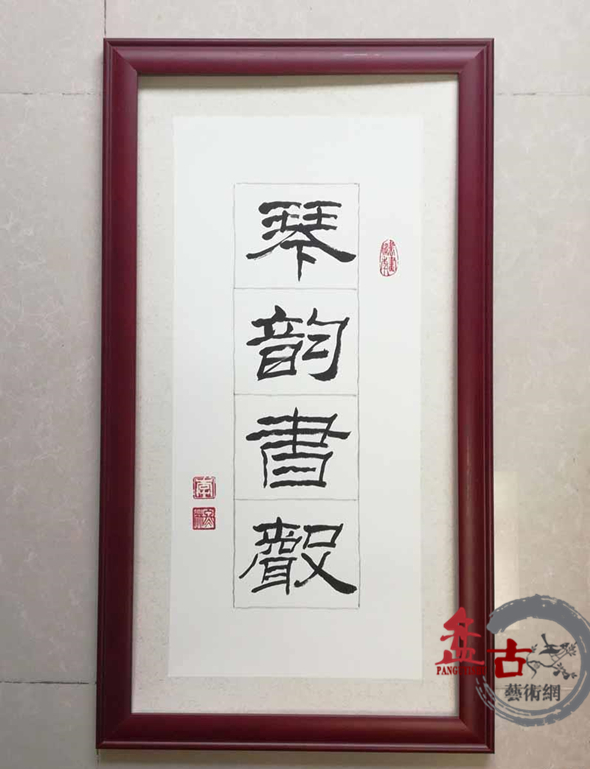 琴
韵
書
聲
盘古
PANG
藝術網